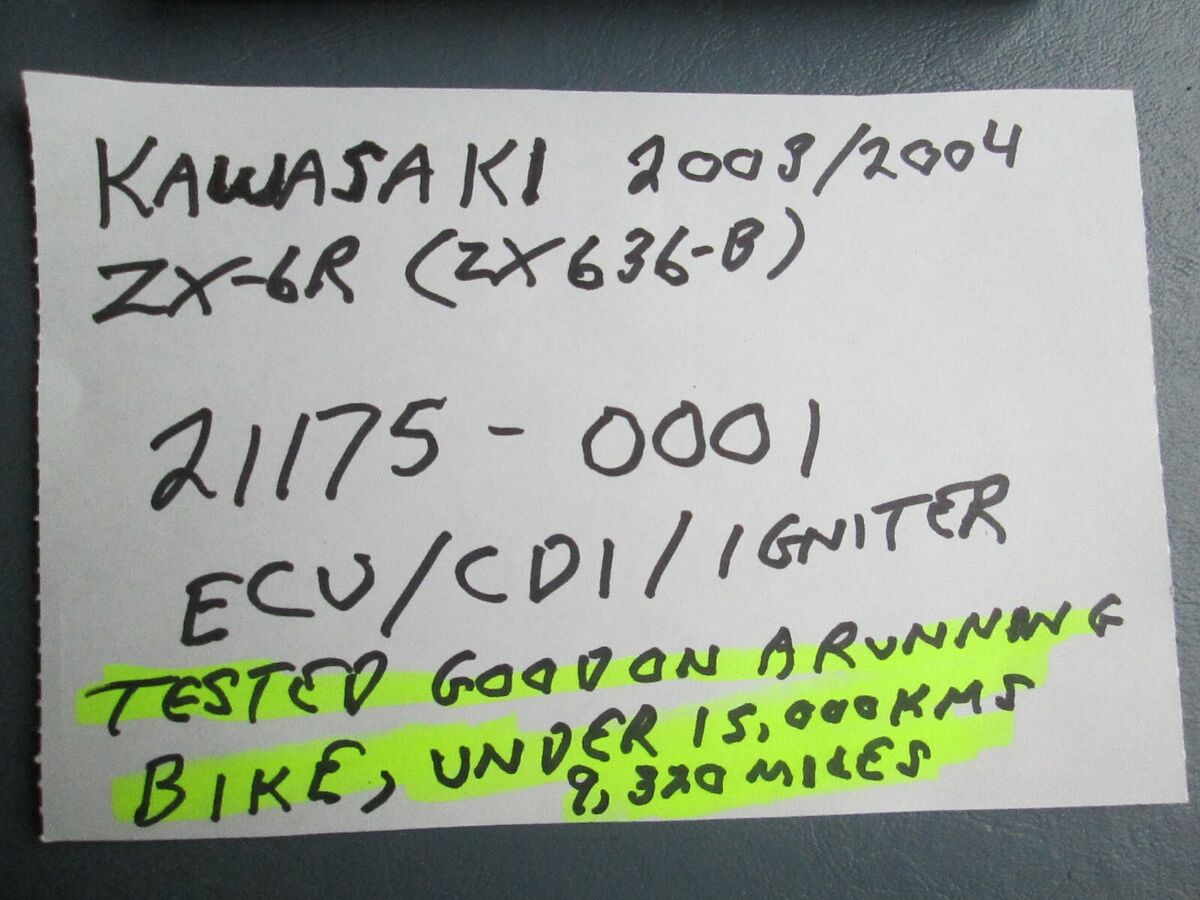 KAWASAKI 2003/2004
ZX-6R (ZX636-B)
21175-0001
ECU/CDI/IGNITER
TESTED GOOD ON A RUNNING
BIKE, UNDER 15,000KMS
9,320 MILES